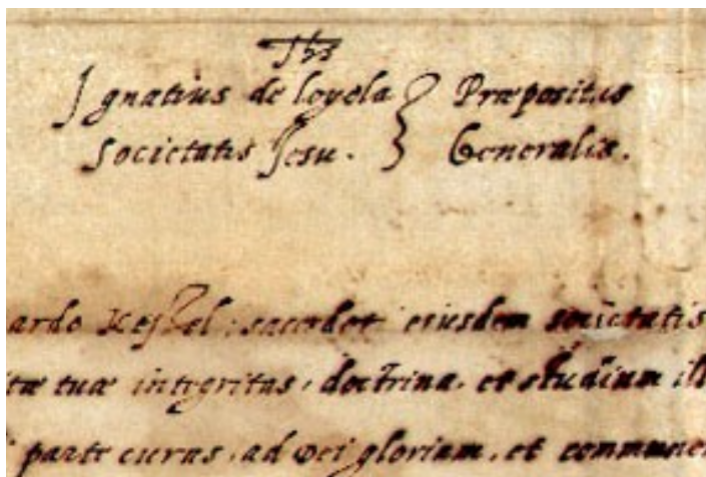 Jhs
Ignatius de loyola } Præpositus
Societatis Jesu. } Generalis.
ardo Keſsel, sacerdoti eiusdem societatis
itæ tuæ integritas, doctrina, et studium ill
parte curas, ad Dei gloriam, et commune